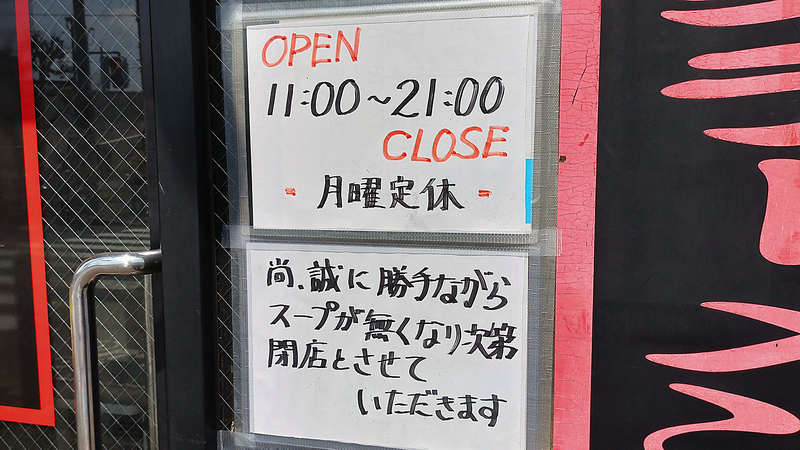 OPEN
11:00~21:00
CLOSE
= 月曜定休 =
尚、誠に勝手ながら
スープが無くなり次第
閉店とさせて
いただきます